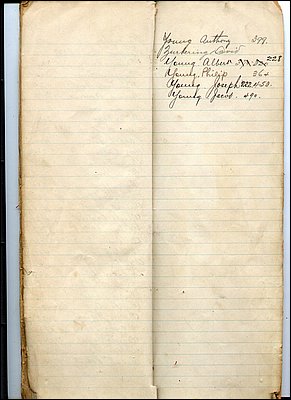 Young Anthony 399.
David
Young Albert 228
Young Philip 364
Young Joseph 222, 450.
Young Jacob. 490.